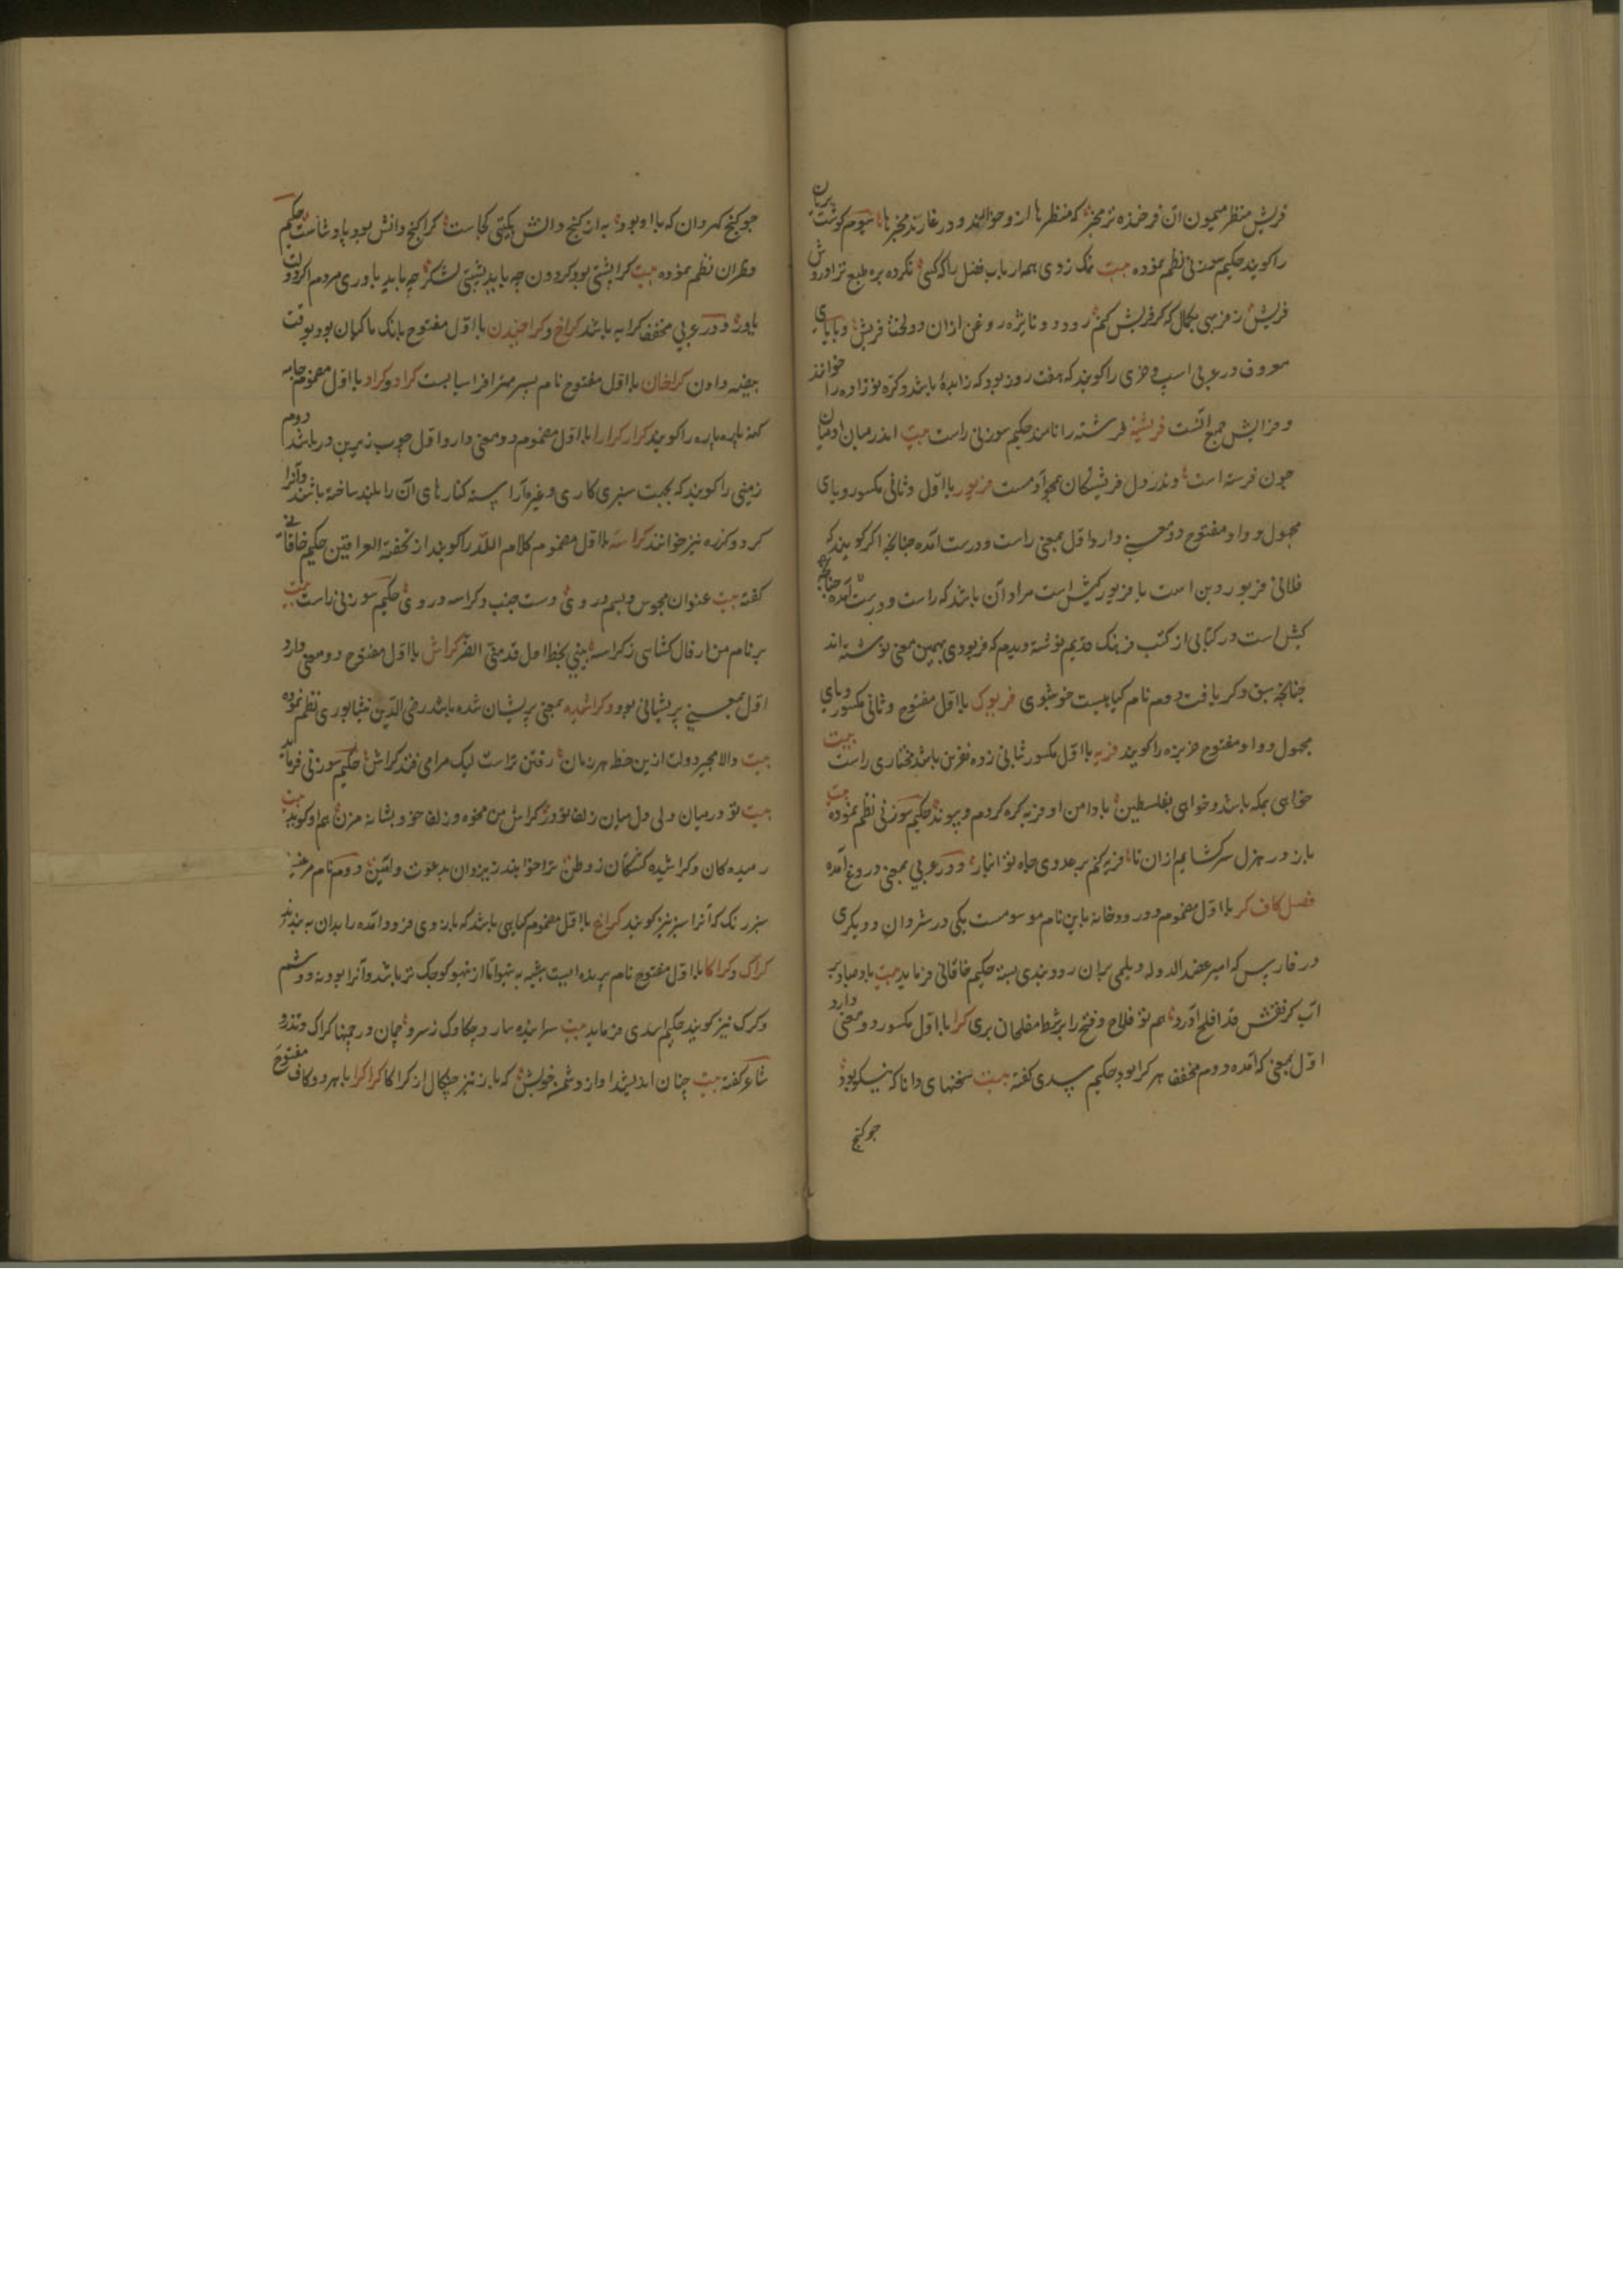 فریش منظر میمون آن فرخنده تر مخبر که منظرها ازو خوالند و در غارند مخبرها سیوم کوشت بریان
را کویند حکیم سوزنی نظم نموده بیت نمک زدی بهمه ارباب فضل را که کسی نکرده بره طبع ترا درو ش
فریش ز فربهی بجمال که کر فریش کنم رود دو نایژه روغن ازان دو لخت فریش و با یای
معروف در عربی اسپ و خری را کویند که هفت روز بود که زاییده باشد و کره نوزاده را خوانند
و فرایش جمع آنست فریشته فرشته را نامند حکیم سوزنی راست بیت اندر میان آدمیان
چون فرسته است وندر دل فریشتکان همچو آدمست فریور با اول و ثانی مکسور و یای
مجهول و واو مفتوح دو معنی دارد اول بمعنی راست و درست آمده چنانچه اکر کویند که
فلانی فریور دین است یا فریور کیش است مراد آن باشد که راست و درست آمده چنانچه
کیش است در کتابی از کتب فرهنک قدیم نوشته دیدم که فریودی بهمین معنی نوشته اند
چنانچه سبق ذکر یافت دوم نام کیاهیست خوشبوی فریوک با اول مفتوح و ثانی مکسور و یای
مجهول و واو مفتوح خربزه را کویند فریه با اول مکسور ثبانی زده نفرین باشد مختاری راست بیت
خواهی بمکه باشد و خواهی بفلسطین با دامن او فریه کره کردم و پیوند حکیم سوزنی نظم نموده بیت
باز در هزل سر کشایم ازان تا فریه کنم بر عدوی جاه تو انبار و در عربی بمعنی دروغ آمده
فصل کاف کر با اول مضموم دو رودخانه باین نام موسومست یکی در شروان و دویکری
در فارس که امیر عضد الدوله دیلمی بران رود بندی بسته حکیم خاقانی فرماید بیت باد صبا بر
آب کر نقش قد افلح آورد تا هم تو فلاح و فتح را بر شط مفلحان بری کرا با اول مکسور دو معنی دارد
اول بمعنی که آمده دوم مخفف هر کرا بود حکیم اسدی کفته بیت سخنهای دانا که نیکو بود
جو کنج
جو کنج کهر دان که با او بود به از کنج دانش بکیتی کجاست کرا کنج دانش بود پادشاست حکیم
قطران نظم نموده بیت کرا پشتی بود کردون چه باید پشتی لشکر چه باید یاوری مردم اکر دولت
یاور و در عربی مخفف کرایه باشد کراخ و کراخیدن با اول مفتوح بانک ماکیان بود بوقت
بیضه دادن کراخان با اول مفتوح نام پسر مهتر افراسیابست کراد و کراده با اول مضموم جامه
کهنه پاره پاره را کویند کرار کرارا با اول مضموم دو معنی دارد اول چوب زیرین در باشد دوم
زمینی را کویند که بجهت سبزی کاری و غیره آراسته کنارهای آن را بلند ساخته باشند و آنرا
کردو کرزه نیز خوانند کراسه با اول مضموم کلام الله را کویند از تحفة العراقین حکیم خاقانی
کفته بیت عنوان مجوس و بسم در وی دست جنب و کراسه در وی حکیم سوزنی راست بیت
بر نام من ار فال کشای ز کراسه بینی بخط اول قد مسنی الضر کراش با اول مفتوح دو معنی دارد
اول بمعنی پریشانی بود و کراشیده بمعنی پریشان شده باشد رضی الدین نیشابوری نظم نموده
بیت والا مجیر دولت ازین خطه هر زمان رفتن تراست لیک مرا می فتد کراش حکیم سوزنی فرماید
بیت تو در میان ولی دل میان زلف تو در کراش من مخوه و زلف خود بشانه مزن هم او کوید بیت
رمیده کان و کراشیده کشتکان ز وطن ترا خوانند ز یزدان بدعوت و آمین دوم نام مرغی
سبز رنک که آنرا سبزنیز کویند کراغ با اول مضموم کیاهی باشد که بازوی فرود آمده را بدان به بندند
کراک و کراکا با اول مفتوح نام پرنده ایست شبیه به تیهو اما از تیهو کوچک تر باشد و آنرا بودنه و وشم
و کرک نیز کویند حکیم اسدی فرماید بیت سراینده سار و چکاوک ز سرو چمان در چمنها کراک و تذرو
شاعر کفته بیت چنان اندیشد او از دشمن خویش که باز تیز چنکال از کراکا کراکرا با هر دو کاف مفتوح